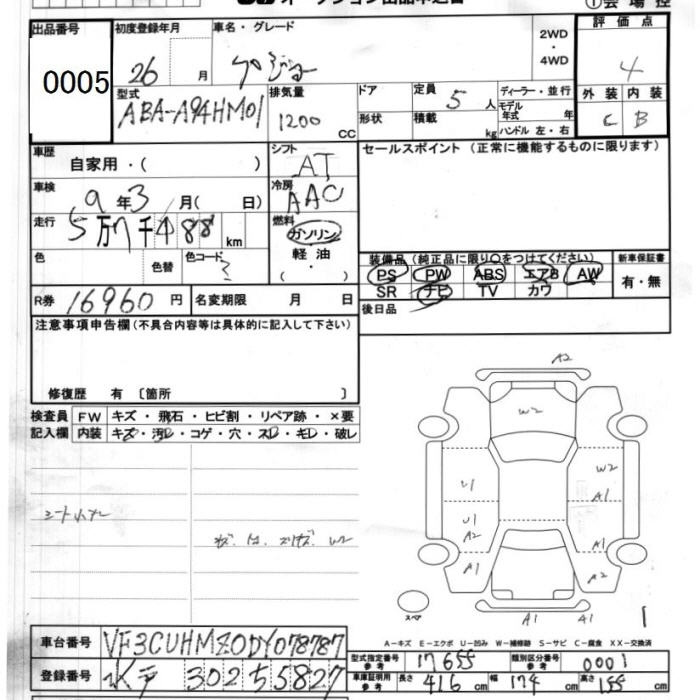 オークション出品申込書 ①会場控
出品番号 初度登録年月 車名・グレード 2WD ・ 4WD 評価点
0005 26 月 プジョー 4
型式 排気量 ドア 定員 5 人 ディーラー・並行 外装 内装
ABA-A94HM01 1200 CC 形状 積載 kg モデル年式 年 C B
ハンドル 左・右
車歴 自家用・( ) シフト AT セールスポイント (正常に機能するものに限ります)
車検 9 年 3 月( 日) 冷房 AAC
走行 5万7千488 km 燃料 ガソリン 軽油 ( ・ )
色 色替 色コード 装備品(純正品に限り○をつけてください) 新車保証書
PS PW ABS エアB AW 有・無
R券 16960 円 名変期限 月 日 SR ナビ TV カワ
注意事項申告欄(不具合内容等は具体的に記入して下さい) 後日品
修復歴 有 〔箇所 〕
検査員 FW キズ・飛石・ヒビ割・リペア跡・×要
記入欄 内装 キズ・汚レ・コゲ・穴・スレ・キレ・破レ
A2
W2
W2
U1 A1
U1
A2
A1 A1
A2
スペア
A1 A1
A-キズ E-エクボ U-凹み W-補修跡 S-サビ C-腐食 XX-交換済
車台番号 VF3CUHMZ0DY078787 型式指定番号 参考 17655 類別区分番号 参考 0001
登録番号 水戸 302 5 5827 車庫証明用 参考 長さ 416 cm 幅 174 cm 高さ 155 cm